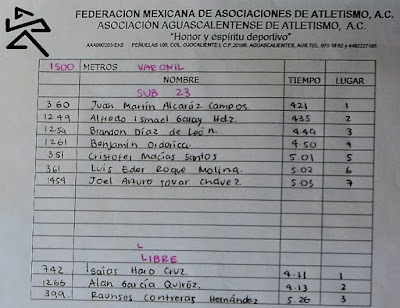 FEDERACION MEXICANA DE ASOCIACIONES DE ATLETISMO, A.C.
ASOCIACIÓN AGUASCALENTENSE DE ATLETISMO, A.C.
"Honor y espíritu deportivo"
PEÑUELAS 108, COL. OJOCALIENTE I, C.P. 20196, AGUASCALIENTES, AGS. TEL.
1500 METROS VARONIL
NOMBRE TIEMPO LUGAR
SUB 23
360 Juan Martín Alcaráz Campos 421 1
1249 Alfredo Ismael Garay Hdz 435 2
1254 Brandon Díaz de León 4.49 3
1261 Benjamín Ordorica 4 50 4
351 Cristofer Macías Santos 5.01 5
361 Luis Eder Roque Molina 5.02 6
1454 Joel Arturo Tovar Chávez 5.03 7
L
LIBRE
742 Isaías Haro Cruz 4-11 1
1266 Alan García Quiróz 4-13 2
399 Contreras Hernández 5.26 3